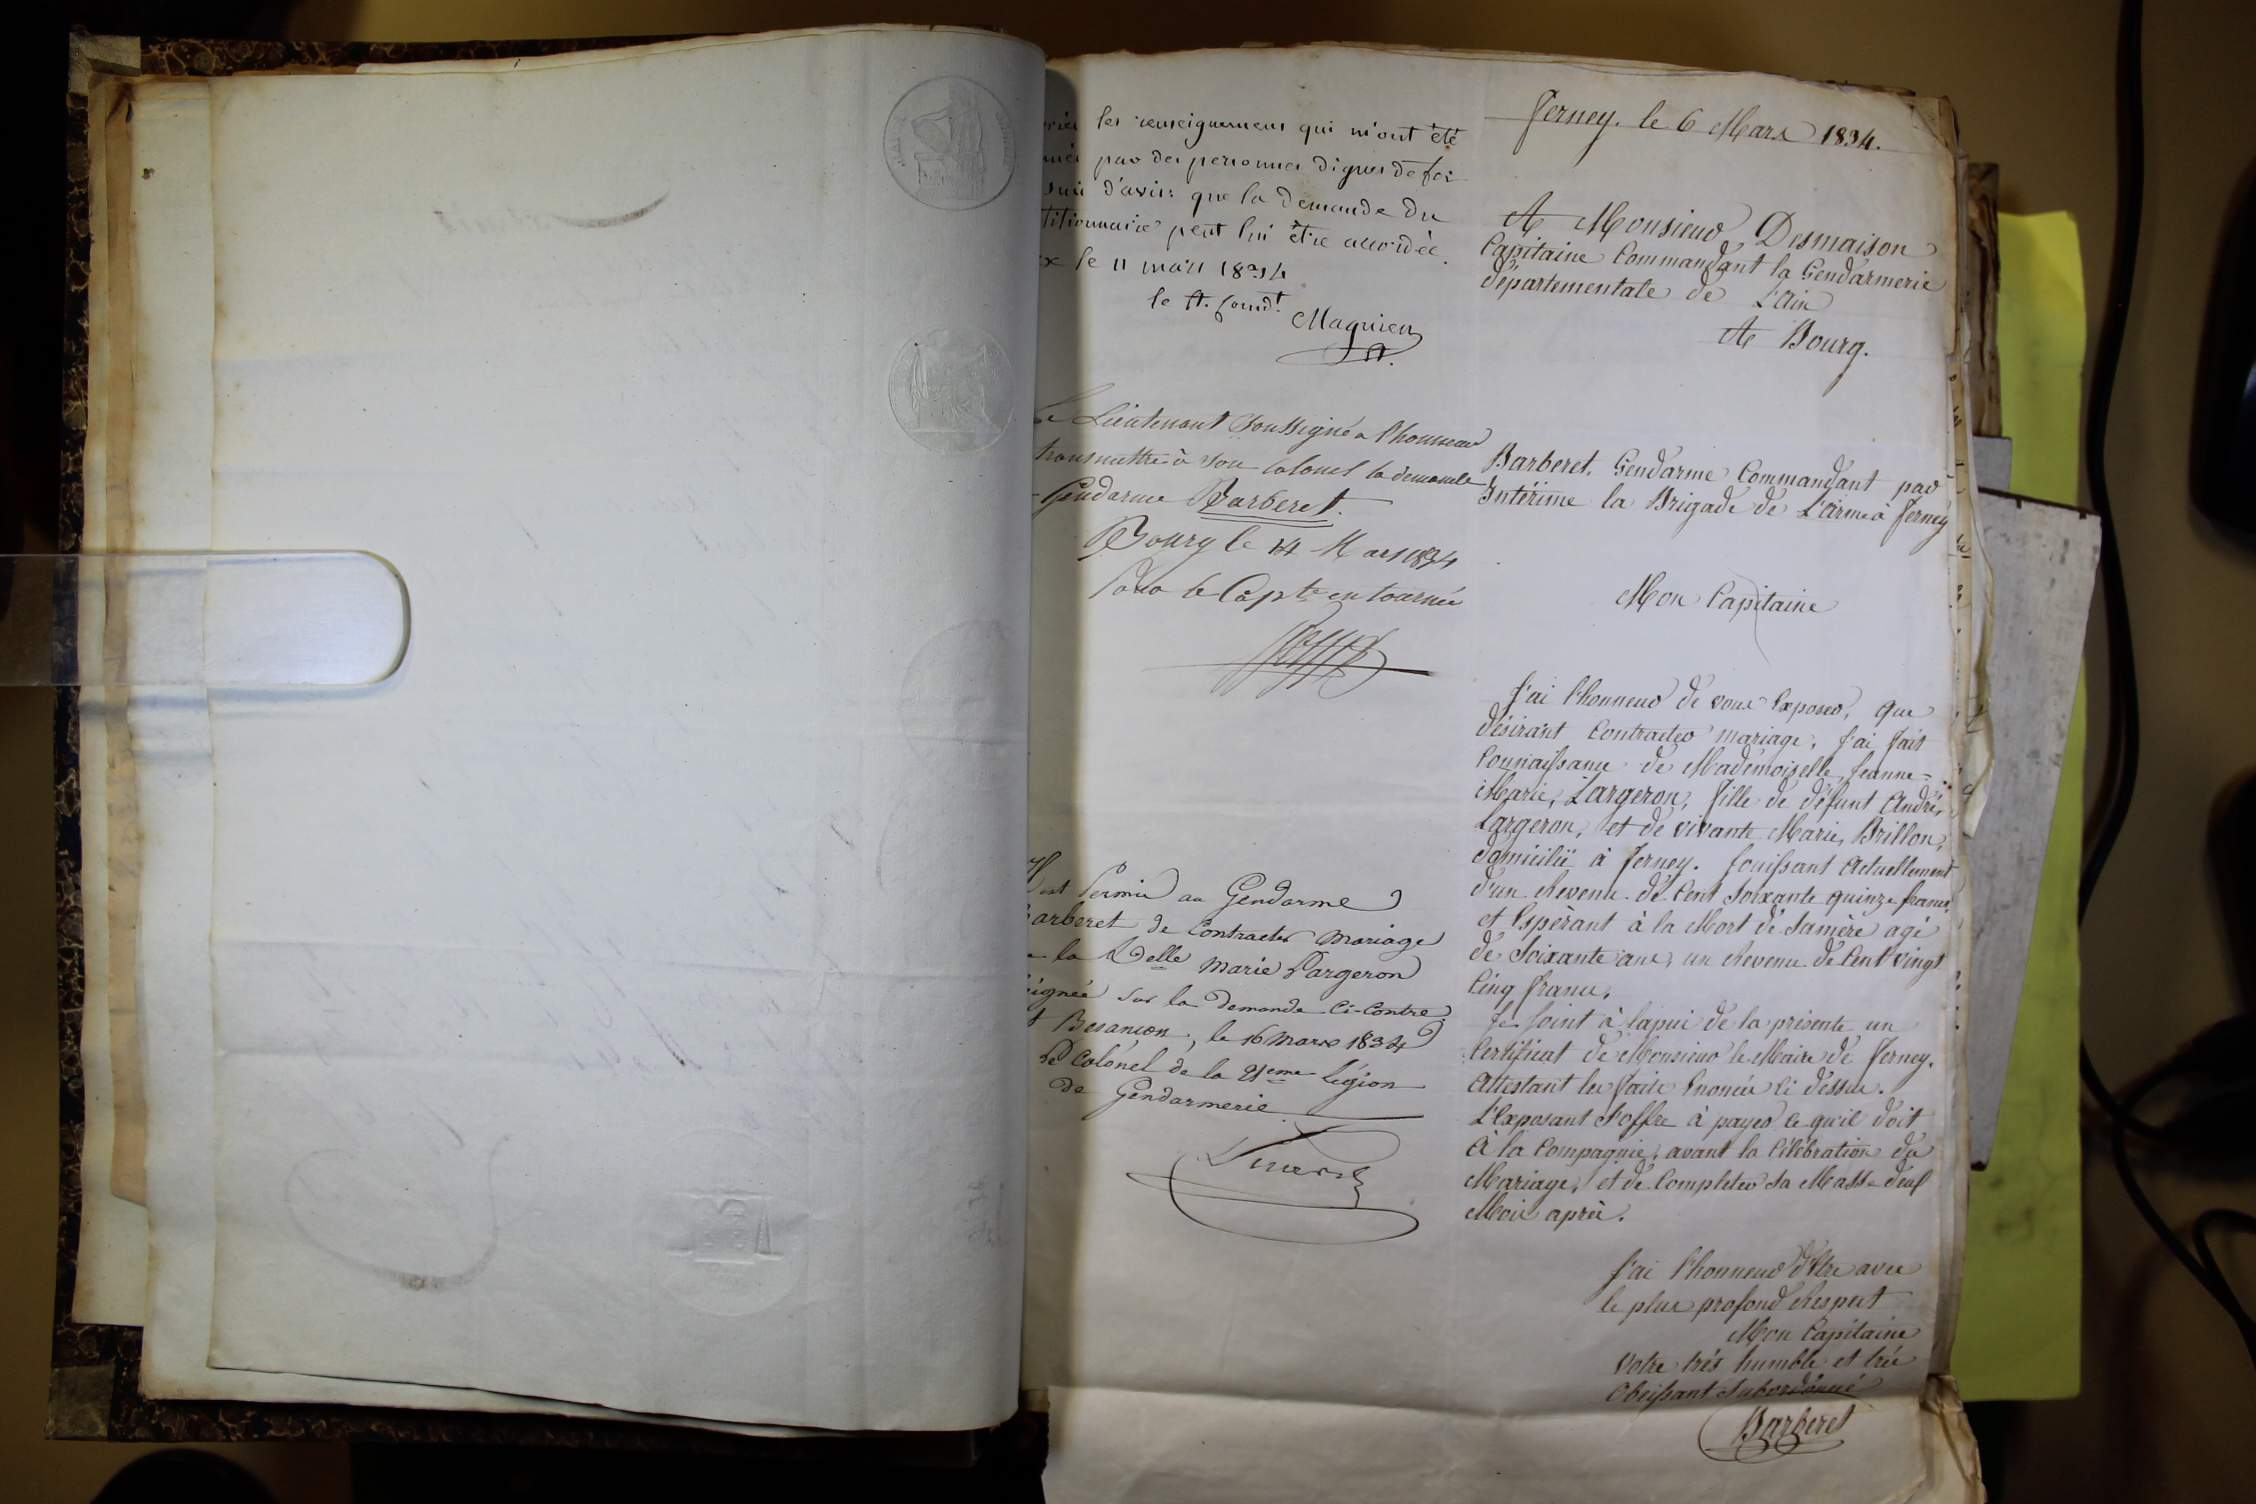 les renseignemens qui m'ont été
par des personnes dignes de foi
d'avis que la demande du
titionnaire peut lui être accordée.
le 11 mars 1834
le lt. comdt.
Magnien
Le Lieutenant Soussigné a l'honneur
transmettre à son Colonel la demande
Gendarme Barberet.
Bourg le 14 Mars 1834
Pour le Capne en tournée
Il est Permis au Gendarme
Barberet de Contracter Mariage
la Delle Marie Largeron
signée sur la demande Ci-Contre
Besançon, le 16 Mars 1834
Le Colonel de la 21eme Légion
de Gendarmerie
Ferney. le 6 Mars 1834.
A Monsieur Desmaison
Capitaine Commandant la Gendarmerie
départementale de L'Ain
A Bourg.
Barberet. Gendarme Commandant par
Intérime la Brigade de L'arme à Ferney
Mon Capitaine
J'ai l'honneur de vous Exposer, que
désirant Contracter mariage, J'ai fait
Connaissance de Mademoiselle, Jeanne-
Marie, Largeron, fille de défunt André,
Largeron, et de vivante Marie, Brillon,
domicilié à Ferney. Jouissant Actuellement
d'un Revenu de Cent Soixante quinze francs,
et Espérant à la Mort de Samère agé
de Soixante ans, un Revenu de Cent vingt
Cinq francs.
Je Joint à lapui de la présente un
Certificat de Monsieur le Maire de Ferney.
Attestant les faits Enoncés Ci dessus.
L'Exposant S'offre à payer ce qu'il doit
à la Compagnie, avant la Célébration du
Mariage, et de Completer Sa Masse deux
Mois après.
J'ai l'honneur d'Etre avec
le plus profond Respect
Mon Capitaine
Votre très humble et très
Obeissant Subordonné
Barberet